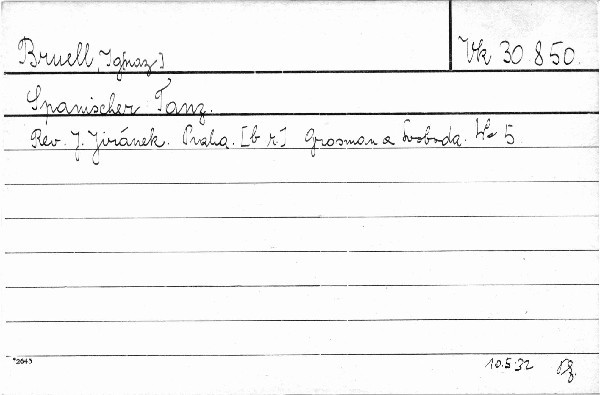 Bruell, Ig[naz]
Vk 30.850.
Spanischer Tanz.
Rev. J. Jiránek. Praha. [b r] Grosman a Svoboda. 4° 5
*2643
10.5.32